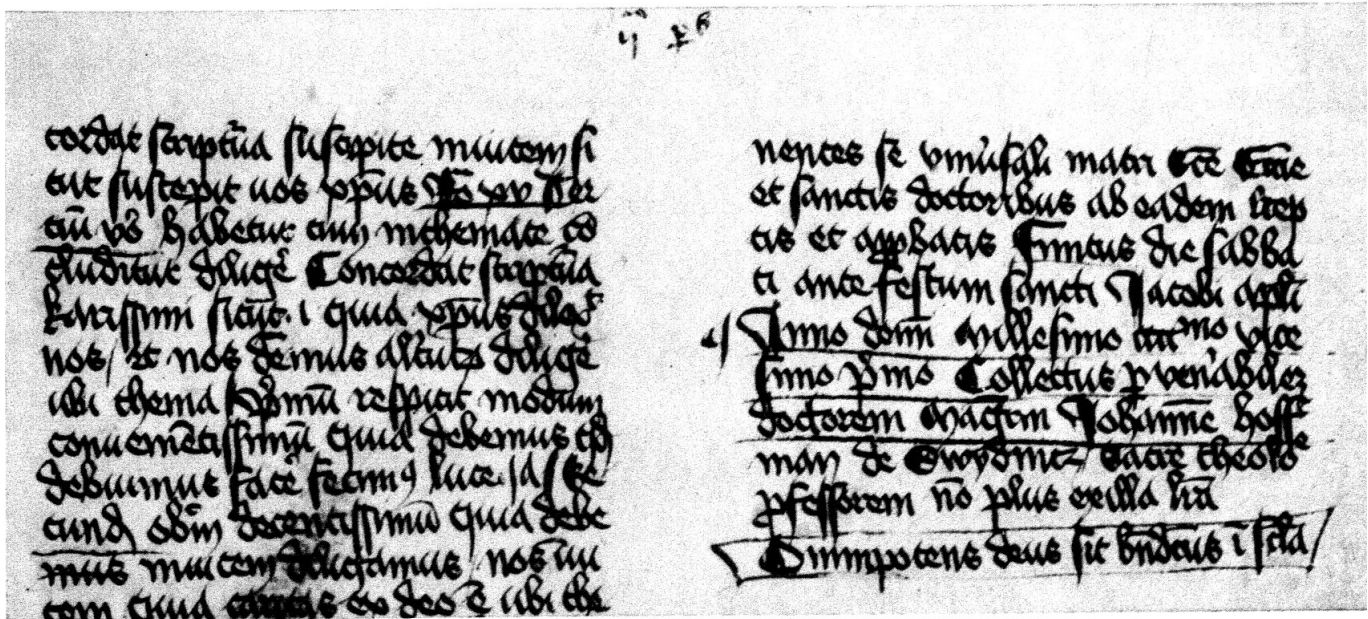 cordat scriptūa suscipite inuicem si
cut suscepit uos xpūs Ro xv Ter
ciū vō habetur cum in themate cō
cluditur diligē Concordat scriptūa
karissimi sicut i quia xpūs
nos et nos debemus diligē
ubi thema respicit modum
conuenientissimū quia debemus
debuimus facē fecimꝰ luce
cundū decentissimū quia debe
mus inuicem diligamus nos inui
cem quia caritas ex deo ē ubi the
nentes se vniūsali matri
et sanctis doctoribus ab eadem
tis et appbatis Finitus die sabba
ti ante festum sancti Jacobi apli
Anno domī Millesimo vice
simo pmo Collectus p venābilez
doctorem Magrm Johannē hoff
man de Swydnicz sacre theolo
pfessorem nō plus ex illa
Omnipotens deus sit bndcus ī scla